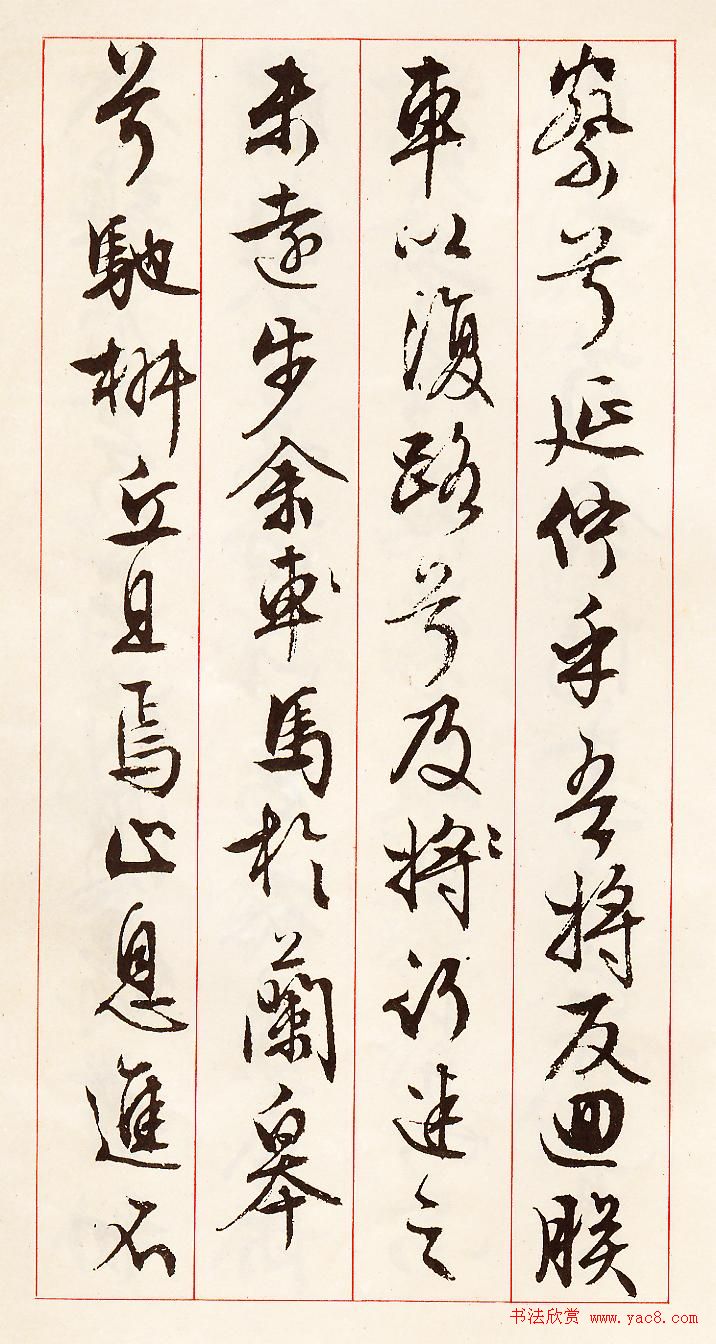 察兮延佇乎吾將反迴朕
車以復路兮及將行迷之
未遠步余車馬於蘭皋
兮馳椒丘且焉止息進不
书法欣赏 www.yac8.com